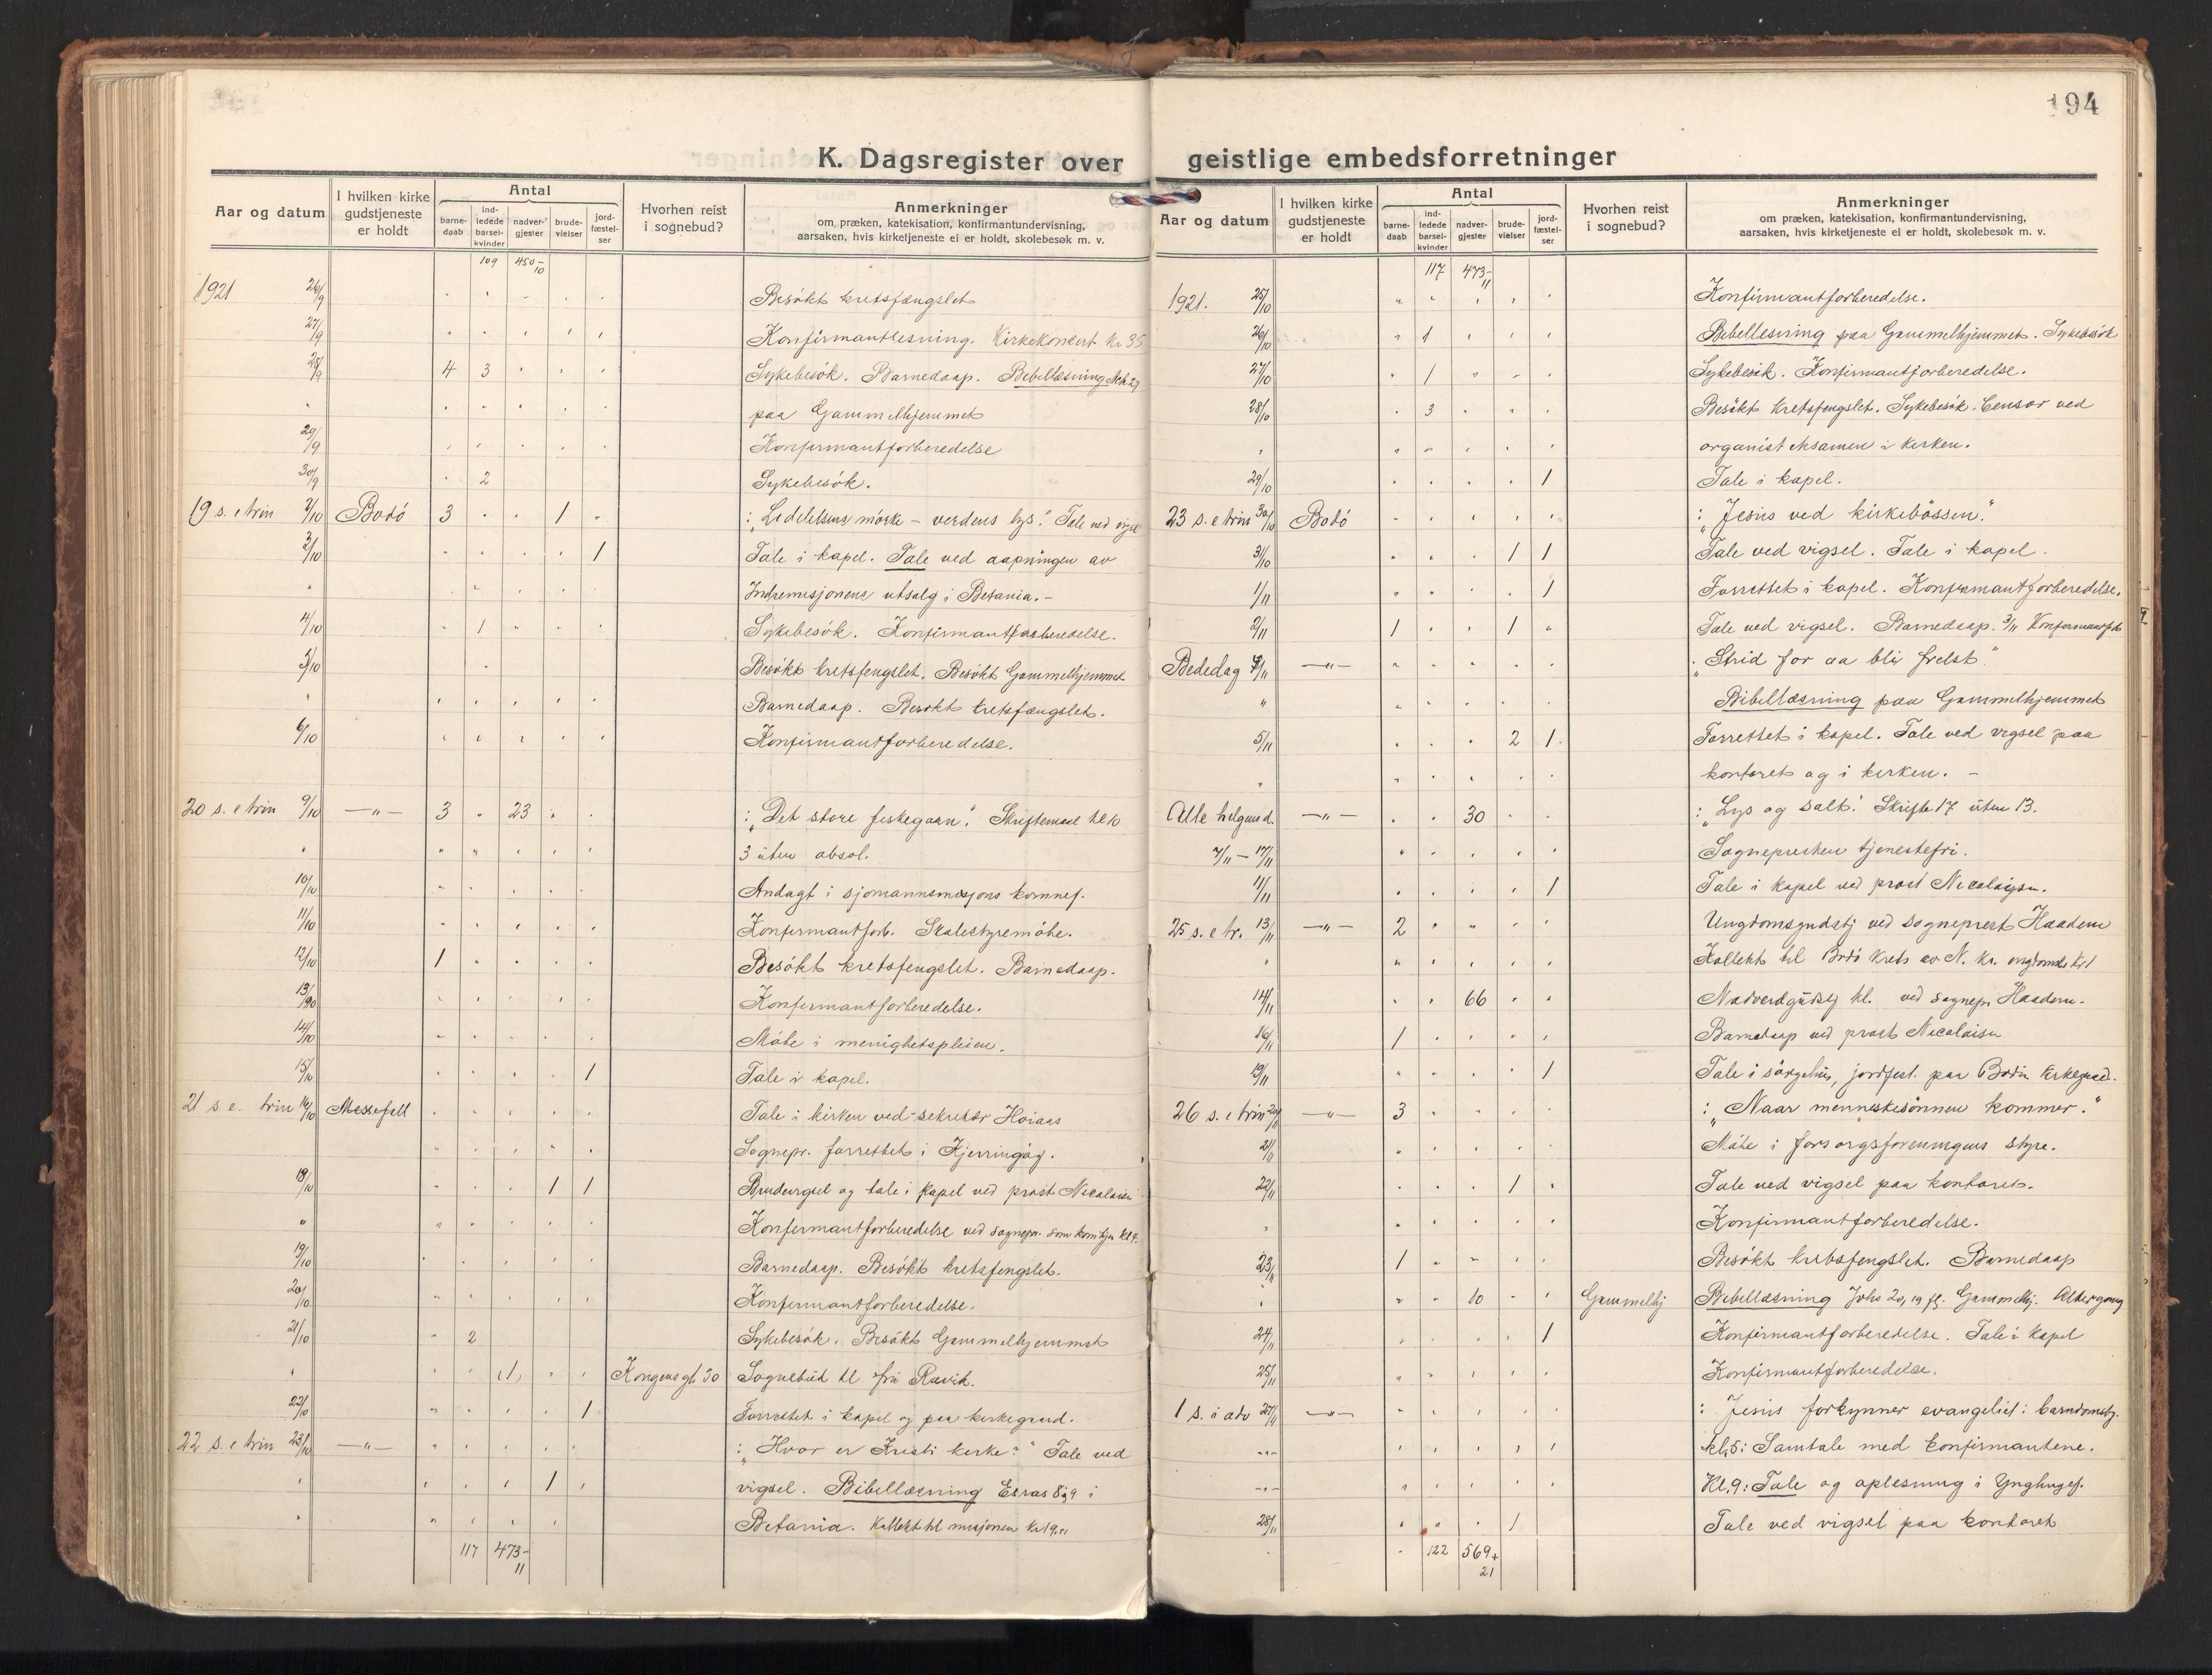 194
K. Dagsregister over geistlige embedsforretninger
Aar og datum | I hvilken kirke gudstjeneste er holdt | Antal: barne-daab | ind-ledede barsel-kvinder | nadver-gjester | brude-vielser | jord-fæstel-ser | Hvorhen reist i sognebud? | Anmerkninger om præken, katekisation, konfirmantundervisning, aarsaken, hvis kirketjeneste ei er holdt, skolebesøk m. v.
109 450-10
1921 26/9 Besökt kretsfængslet
27/9 Konfirmantlesning. Kirkekoncert Kr 35
28/9 4 3 Sykebesök. Barnedaap. Bibellæsning
paa Gammelhjemmet
29/9 Konfirmantforberedelse
30/9 2 Sykebesök.
19 s. e trin 2/10 Bodö 3 1 : „Ledelsens mörke – verdens lys." Tale ved vigsel
3/10 1 Tale i kapel. Tale ved aapningen av
Indremisjonens utsalg i Betania. –
4/10 1 Sykebesök. Konfirmantforberedelse.
5/10 Besökt kretsfengslet. Besökt Gammelhjemmet
Barnedaap. Besökt kretsfængslet.
6/10 Konfirmantforberedelse.
20 s. e trin 9/10 —"— 3 23 : „Det store fiskegarn". Skriftemaal til 10
3 uten absol.
10/10 Andagt i sjömannsmisjons
11/10 Konfirmantforb. Skolestyremöte.
12/10 1 Besökt kretsfengslet. Barnedaap.
13/10 Konfirmantforberedelse.
14/10 Möte i menighetspleien.
15/10 1 Tale i kapel.
21 s e. trin 16/10 Messefall Tale i kirken ved sekretær Höiaas
Sognepr. forrettet i Kjerringöy.
18/10 1 1 Brudevigsel og tale i kapel ved prost Nicolaisen
Konfirmantforberedelse ved sognepr. som kom hjem kl 4.
19/10 Barnedaap. Besökt kretsfengslet.
20/10 Konfirmantforberedelse.
21/10 2 Sykebesök. Besökt Gammelhjemmet
(1) Kongensgt 30 Sognebud til fru Ravik.
22/10 1 Forrettet i kapel og paa kirkegaard.
22 s. e trin 23/10 —"— : „Hvor er Kristi kirke?" Tale ved
1 vigsel. Bibellæsning Esras 8,9 i
Betania. Kollekt til misjonen Kr 19.11
117 473-11
Aar og datum | I hvilken kirke gudstjeneste er holdt | Antal: barne-daab | ind-ledede barsel-kvinder | nadver-gjester | brude-vielser | jord-fæstel-ser | Hvorhen reist i sognebud? | Anmerkninger om præken, katekisation, konfirmantundervisning, aarsaken, hvis kirketjeneste ei er holdt, skolebesøk m. v.
117 473-11
1921. 25/10 Konfirmantforberedelse.
26/10 1 Bibellesning paa Gammelhjemmet. Sykebesök
27/10 1 Sykebesök. Konfirmantforberedelse.
28/10 3 Besökt kretsfengslet. Sykebesök. Censor ved
organisteksamen i kirken.
29/10 1 Tale i kapel.
23 s. e trin 30/10 Bodö : „Jesus ved kirkebössen."
31/10 1 1 Tale ved vigsel. Tale i kapel.
1/11 1 Forrettet i kapel. Konfirmantforberedelse.
2/11 1 1 Tale ved vigsel. Barnedaap. 3/11 Konfirmantfb
Bededag 4/11 —"— : „Strid for aa bli frelst."
Bibellæsning paa Gammelhjemmet
5/11 2 1 Forrettet i kapel. Tale ved vigsel paa
kontoret og i kirken. –
Alle helgensd. —"— 30 : „Lys og salt." Skrifte 17 uten 13.
7/11 – 17/11 Sognepresten tjenestefri.
11/11 1 Tale i kapel ved prost Nicolaisen.
25 s. e tr. 13/11 —"— 2 Ungdomsgudstj ved sogneprest Haadem
Kollekt til Bodö krets av N. Kr.
14/11 66 Nadverdgudstj kl. ved sognepr Haadem.
16/11 1 Barnedaap ved prost Nicolaisen
19/11 1 Tale i sörgehus, jordfest. paa Bodin kirkegaard.
26 s. e trin 20/11 —"— 3 : „Naar menneskesönnen kommer."
21/11 Möte i forsorgsforeningens styre.
22/11 1 Tale ved vigsel paa kontoret.
Konfirmantforberedelse.
23/11 1 Besökt kretsfengslet. Barnedaap
10 Gammelhj Bibellæsning Johs 20,19 fl. Gammelhj. Altergang
24/11 1 Konfirmantforberedelse. Tale i kapel
25/11 Konfirmantforberedelse.
1 s. i adv 27/11 —"— : Jesus forkynner evangeliet i barndomsby.
kl. 5: Samtale med konfirmantene.
Kl. 9: Tale og oplesning i Ynglingef.
28/11 1 Tale ved vigsel paa kontoret
122 569+21